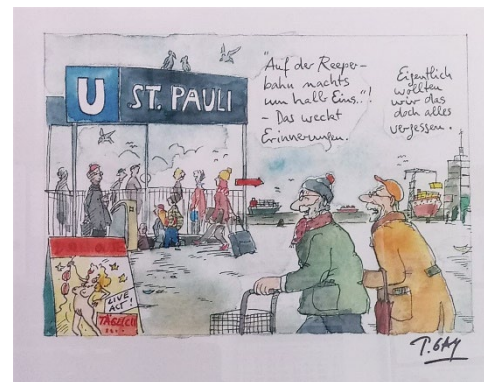 U ST. PAULI
"Auf der Reeper-
bahn nachts
um halb Eins.."!
- Das weckt
Erinnerungen.
Eigentlich
wollten
wir das
doch alles
vergessen.
LIVE
ACT
TÄGLICH
T. GAY